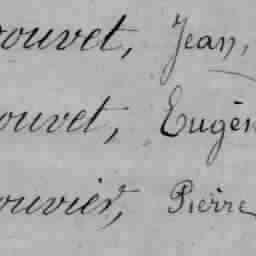 ouvet, Jean,
ouvet, Eugèn
ouvier, Pierre